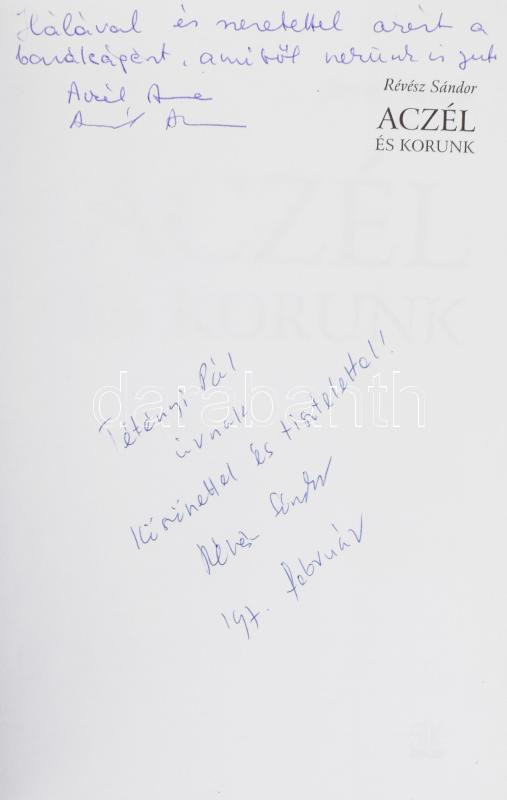 Hálával és szeretettel azért a
barátságért, amiből nekünk is jut
Aczél Anna
Révész Sándor
ACZÉL
ÉS KORUNK
ACZÉL
KORUNK
darabanth
Tétényi Pál
úrnak
Köszönettel és tisztelettel!
Révész Sándor
197. február